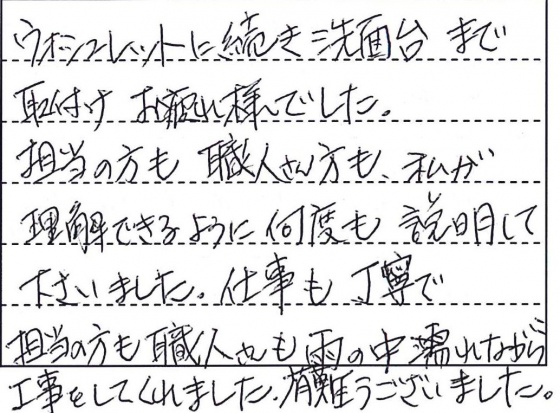 ウォシュレットに続き洗面台まで
取付け お疲れ様でした。
担当の方も 職人さん方も、私が
理解できるように 何度も 説明して
下さいました。仕事も 丁寧で
担当の方も職人さんも雨の中濡れながら
工事をしてくれました。有難うございました。